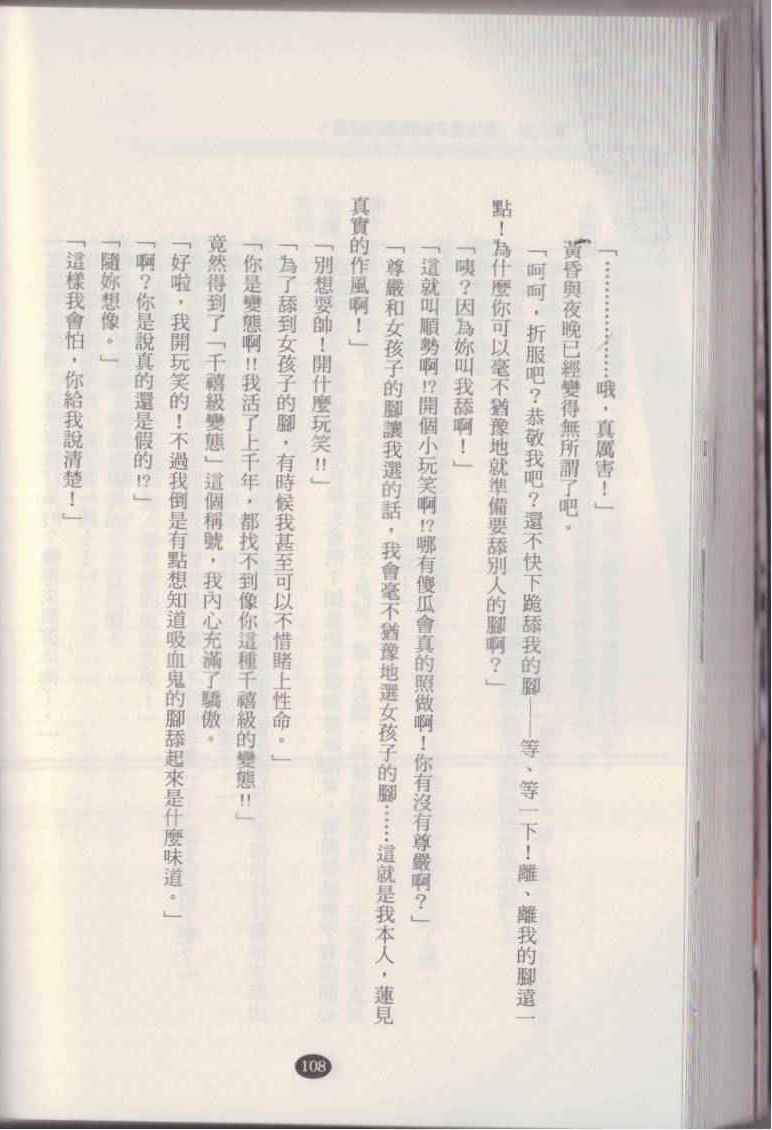 「………………哦，真厲害！」
黃昏與夜晚已經變得無所謂了吧。
「呵呵，折服吧？恭敬我吧？還不快下跪舔我的腳——等、等一下！離、離我的腳遠一
點！為什麼你可以毫不猶豫地就準備要舔別人的腳啊？」
「咦？因為妳叫我舔啊！」
「這就叫順勢啊!?開個小玩笑啊!?哪有傻瓜會真的照做啊！你有沒有尊嚴啊？」
「尊嚴和女孩子的腳讓我選的話，我會毫不猶豫地選女孩子的腳……這就是我本人，蓮見
真實的作風啊！」
「別想耍帥！開什麼玩笑!!」
「為了舔到女孩子的腳，有時候我甚至可以不惜賭上性命。」
「你是變態啊!!我活了上千年，都找不到像你這種千禧級的變態!!」
竟然得到了「千禧級變態」這個稱號，我內心充滿了驕傲。
「好啦，我開玩笑的！不過我倒是有點想知道吸血鬼的腳舔起來是什麼味道。」
「啊？你是說真的還是假的!?」
「隨妳想像。」
「這樣我會怕，你給我說清楚！」
108